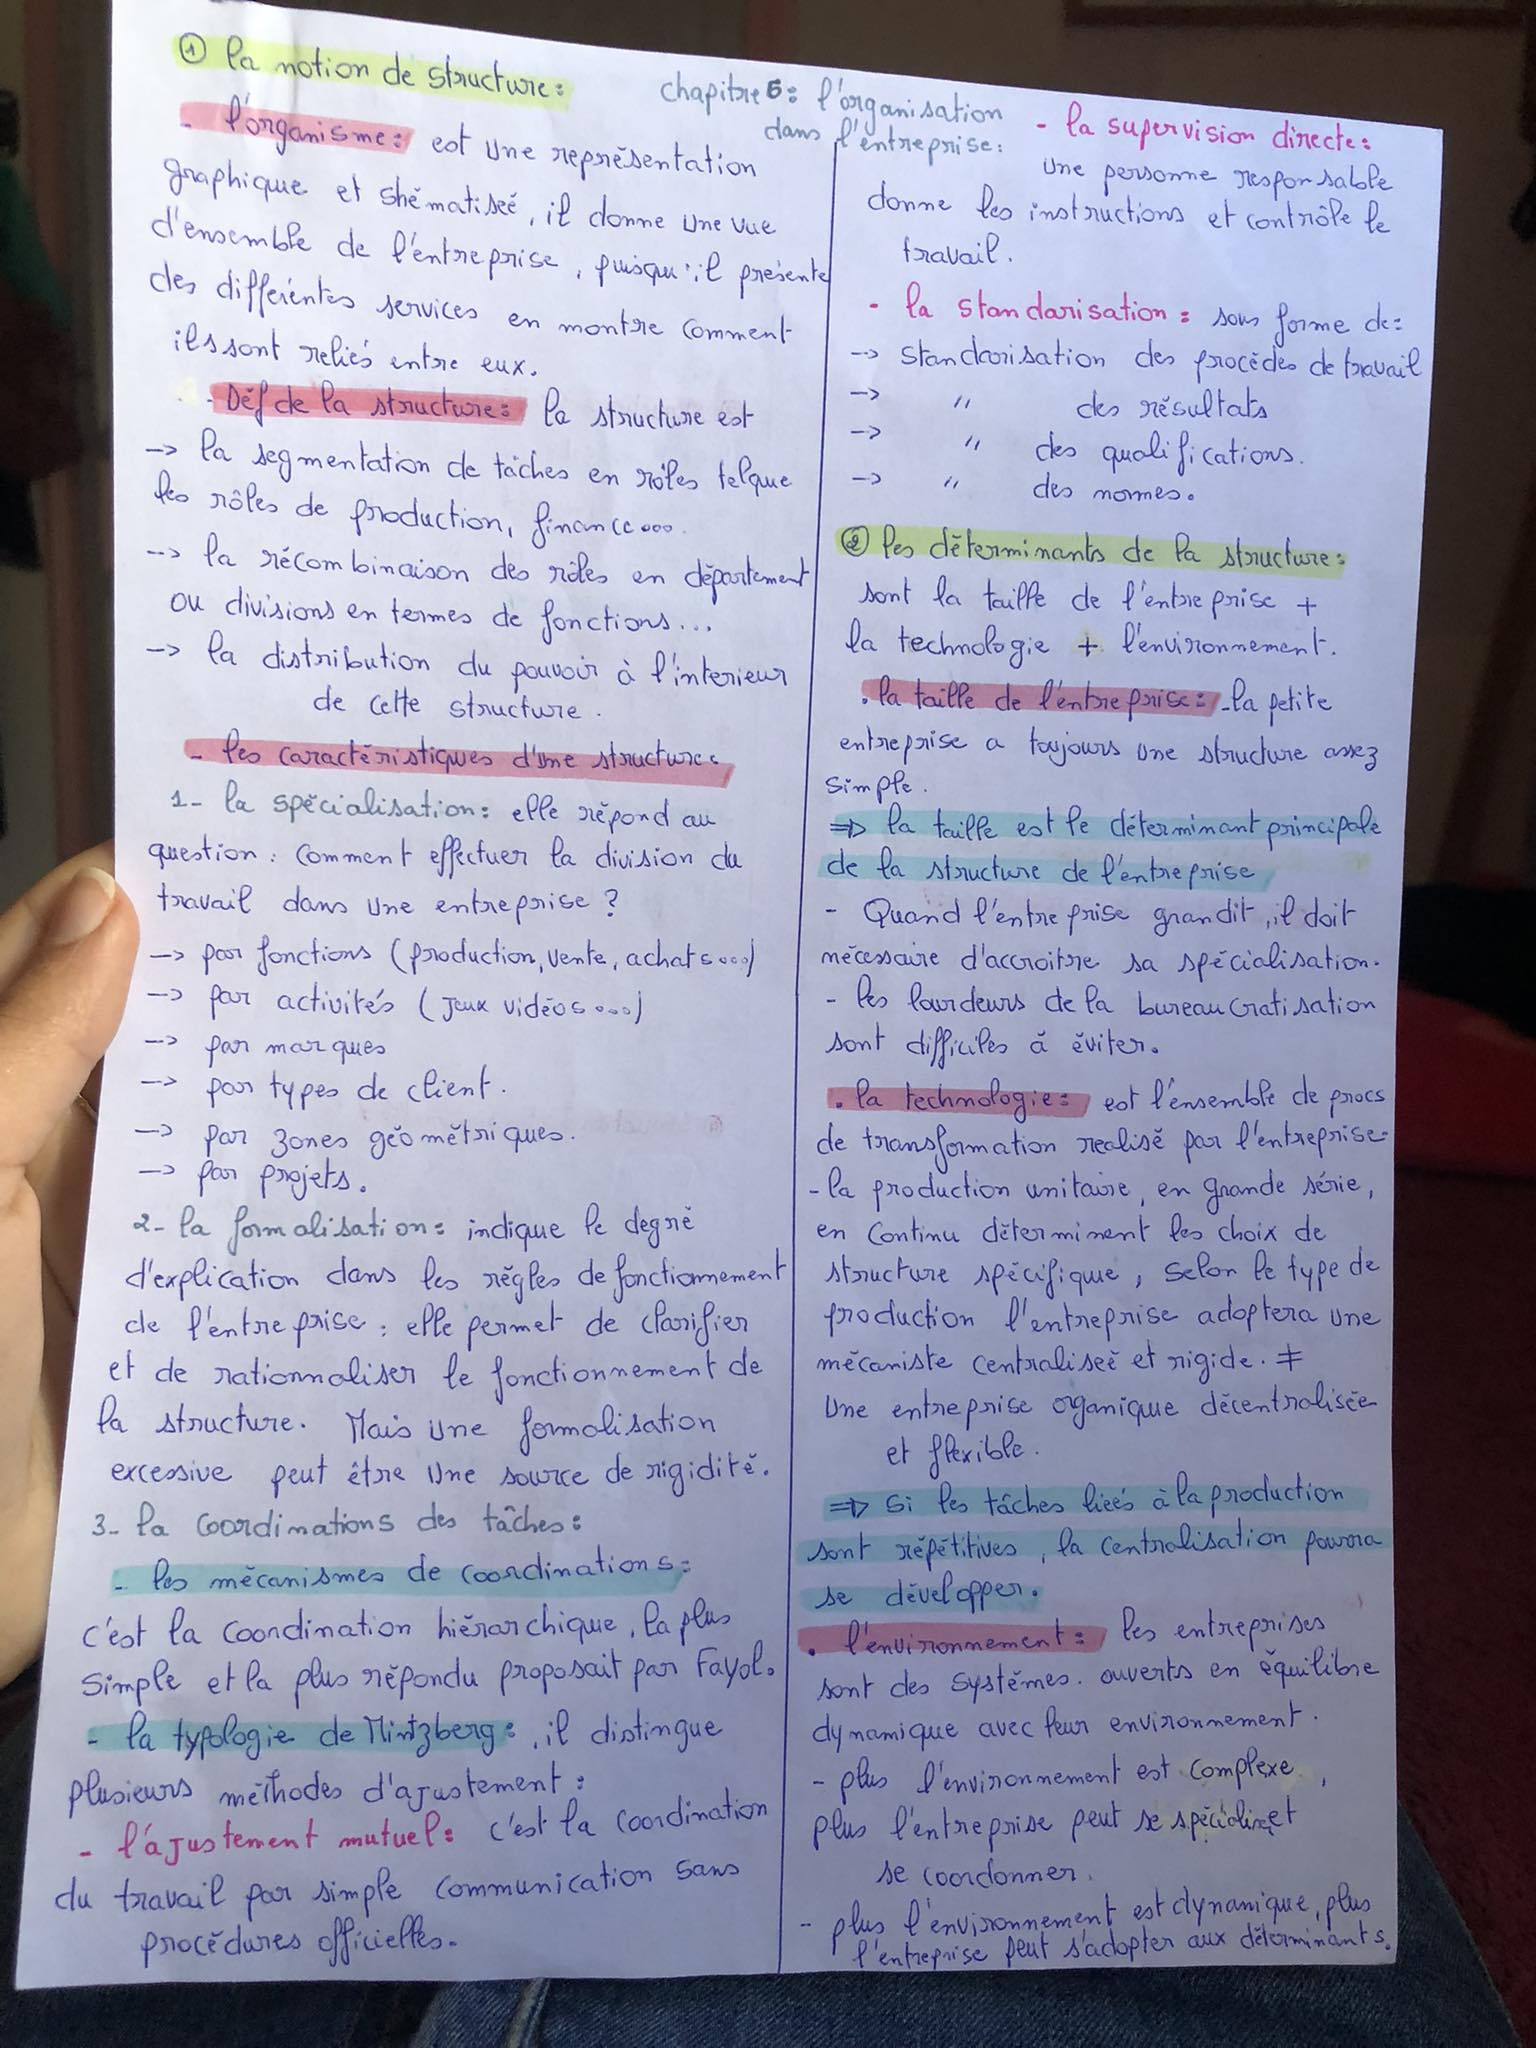 chapitre 5: l'organisation
dans l'entreprise:
① la notion de structure:
- l'organisme: est une représentation
graphique et shématiseé, il donne une vue
d'ensemble de l'entreprise, puisqu'il présente
des différentes services en montre comment
ils sont reliés entre eux.
- Déf de la structure: la structure est
-> la segmentation de tâches en rôles telque
les rôles de production, finance...
-> la récombinaison des rôles en département
ou divisions en termes de fonctions...
-> la distribution du pouvoir à l'interieur
de cette structure.
- les caractéristiques d'une structure:
1- la spécialisation: elle répond au
question: comment effectuer la division du
travail dans une entreprise ?
-> par fonctions (production, vente, achats...)
-> par activités (jeux vidéos...)
-> par marques
-> par types de client.
-> par zones géométriques.
-> par projets.
2- la formalisation: indique le degré
d'explication dans les régles de fonctionnement
de l'entreprise: elle permet de clarifier
et de rationnaliser le fonctionnement de
la structure. Mais une formalisation
excessive peut être une source de rigidité.
3- la coordinations des tâches:
- les mécanismes de coordinations:
c'est la coordination hiérarchique, la plus
simple et la plus répondu proposait par Fayol.
- la typologie de Mintzberg: il distingue
plusieurs méthodes d'ajustement:
- l'ajustement mutuel: c'est la coordination
du travail par simple communication sans
procédures officielles.
- la supervision directe:
une personne responsable
donne les instructions et contrôle le
travail.
- la standarisation: sous forme de:
-> standarisation des procédés de travail
-> " des résultats
-> " des qualifications.
-> " des normes.
② les déterminants de la structure:
sont la taille de l'entreprise +
la technologie + l'environnement.
. la taille de l'entreprise: - la petite
entreprise a toujours une structure assez
simple.
=> la taille est le déterminant principale
de la structure de l'entreprise
- Quand l'entreprise grandit, il doit
nécessaire d'accroitre sa spécialisation.
- les lourdeurs de la bureaucratisation
sont difficiles à éviter.
. la technologie: est l'énsemble de procs
de transformation realisé par l'entreprise.
- la production unitaire, en grande série,
en continu déterminent les choix de
structure spécifique, selon le type de
production l'entreprise adoptera une
mécaniste centraliseé et rigide. ≠
une entreprise organique décentralisée
et flexible.
=> si les tâches liées à la production
sont répétitives, la centralisation pourra
se développer.
. l'environnement: les entreprises
sont des systémes. ouverts en équilibre
dynamique avec leur environnement.
- plus l'environnement est complexe,
plus l'entreprise peut se spécialiser et
se coordonner.
- plus l'environnement est dynamique, plus
l'entreprise peut s'adopter aux déterminants.